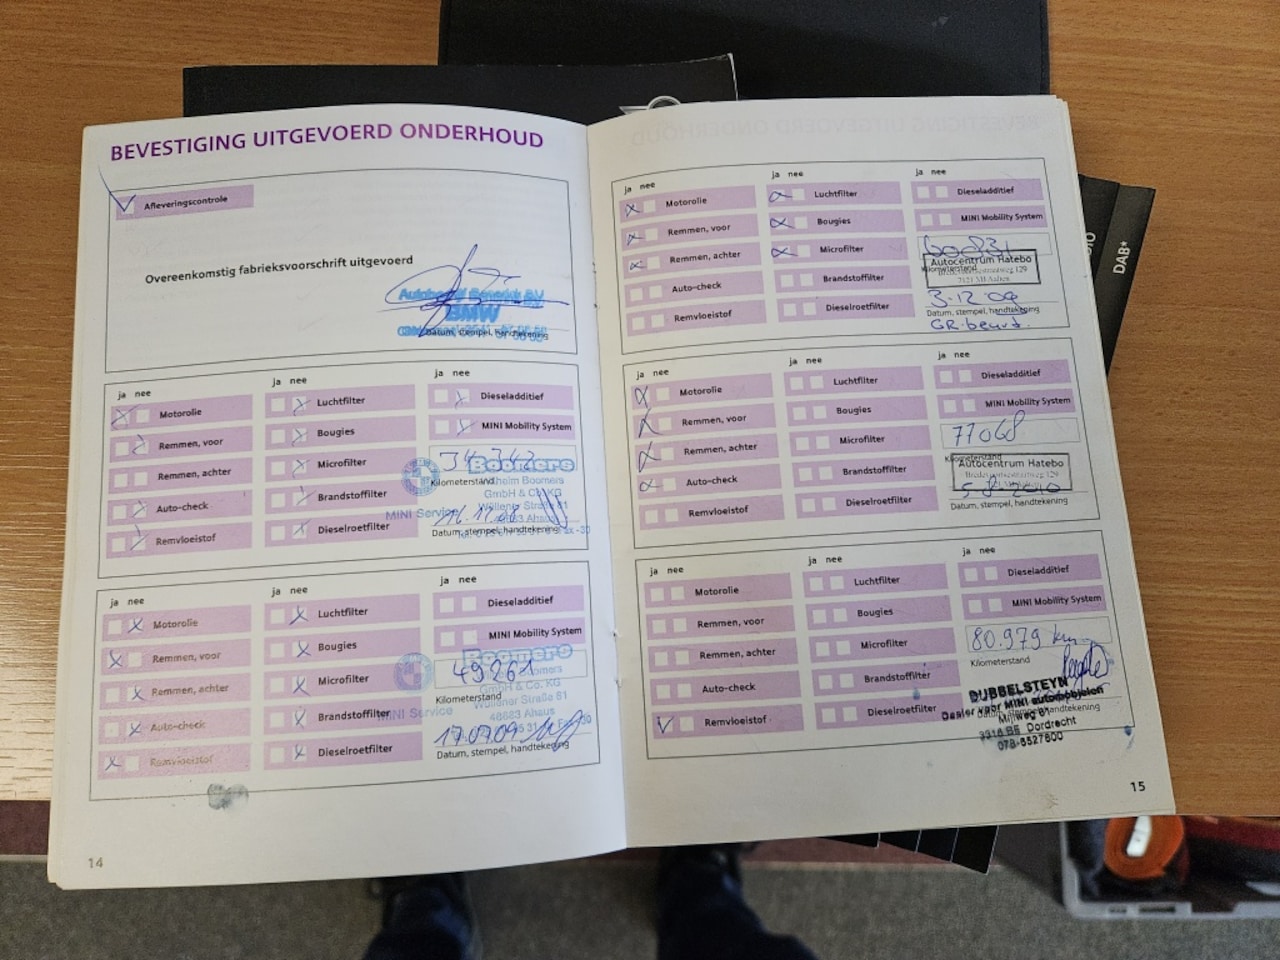 BEVESTIGING UITGEVOERD ONDERHOUD
Afleveringscontrole
Overeenkomstig fabrieksvoorschrift uitgevoerd
BMW
Datum, stempel, handtekening
ja nee
ja nee
ja nee
Motorolie
Luchtfilter
Dieseladditief
Remmen, voor
Bougies
MINI Mobility System
Remmen, achter
Microfilter
Boomers
Kilometerstand
Auto-check
Brandstoffilter
GmbH & Co. KG
MINI Service
Remvloeistof
Dieselroetfilter
Datum, stempel, handtekening
ja nee
ja nee
ja nee
Motorolie
Luchtfilter
Dieseladditief
Remmen, voor
Bougies
MINI Mobility System
Remmen, achter
Microfilter
Boomers
49261
Kilometerstand
GmbH & Co. KG
Auto-check
Brandstoffilter
MINI Service
Wüllener Straße 81
48683 Ahaus
Remvloeistof
Dieselroetfilter
17.07.09
Datum, stempel, handtekening
14
ja nee
ja nee
ja nee
Motorolie
Luchtfilter
Dieseladditief
Remmen, voor
Bougies
MINI Mobility System
Remmen, achter
Microfilter
Kilometerstand
Autocentrum Hatebo
Auto-check
Brandstoffilter
Remvloeistof
Dieselroetfilter
3.12.09
Datum, stempel, handtekening
GR.beurt.
ja nee
ja nee
ja nee
Motorolie
Luchtfilter
Dieseladditief
Remmen, voor
Bougies
MINI Mobility System
77068
Remmen, achter
Microfilter
Kilometerstand
Autocentrum Hatebo
Auto-check
Brandstoffilter
5-8-2010
Remvloeistof
Dieselroetfilter
Datum, stempel, handtekening
ja nee
ja nee
ja nee
Motorolie
Luchtfilter
Dieseladditief
Remmen, voor
Bougies
MINI Mobility System
80.979 km
Remmen, achter
Microfilter
Kilometerstand
Auto-check
Brandstoffilter
DUBBELSTEYN
Dealer voor MINI automobielen
Remvloeistof
Dieselroetfilter
Mijlweg 61
3316 BE Dordrecht
078-6527600
15
DAB*